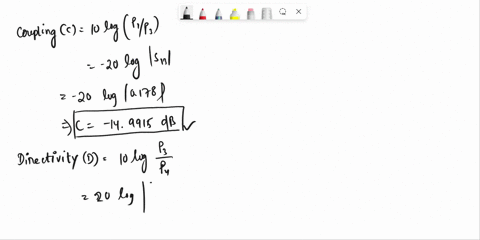 Coupling (C) = 10 log (P₁/P₃)
= -20 log |S₁₁|
= -20 log |0.178|
⇒ C = -14.9915 dB ✓
Directivity (D) = 10 log P₃/P₄
= 20 log |